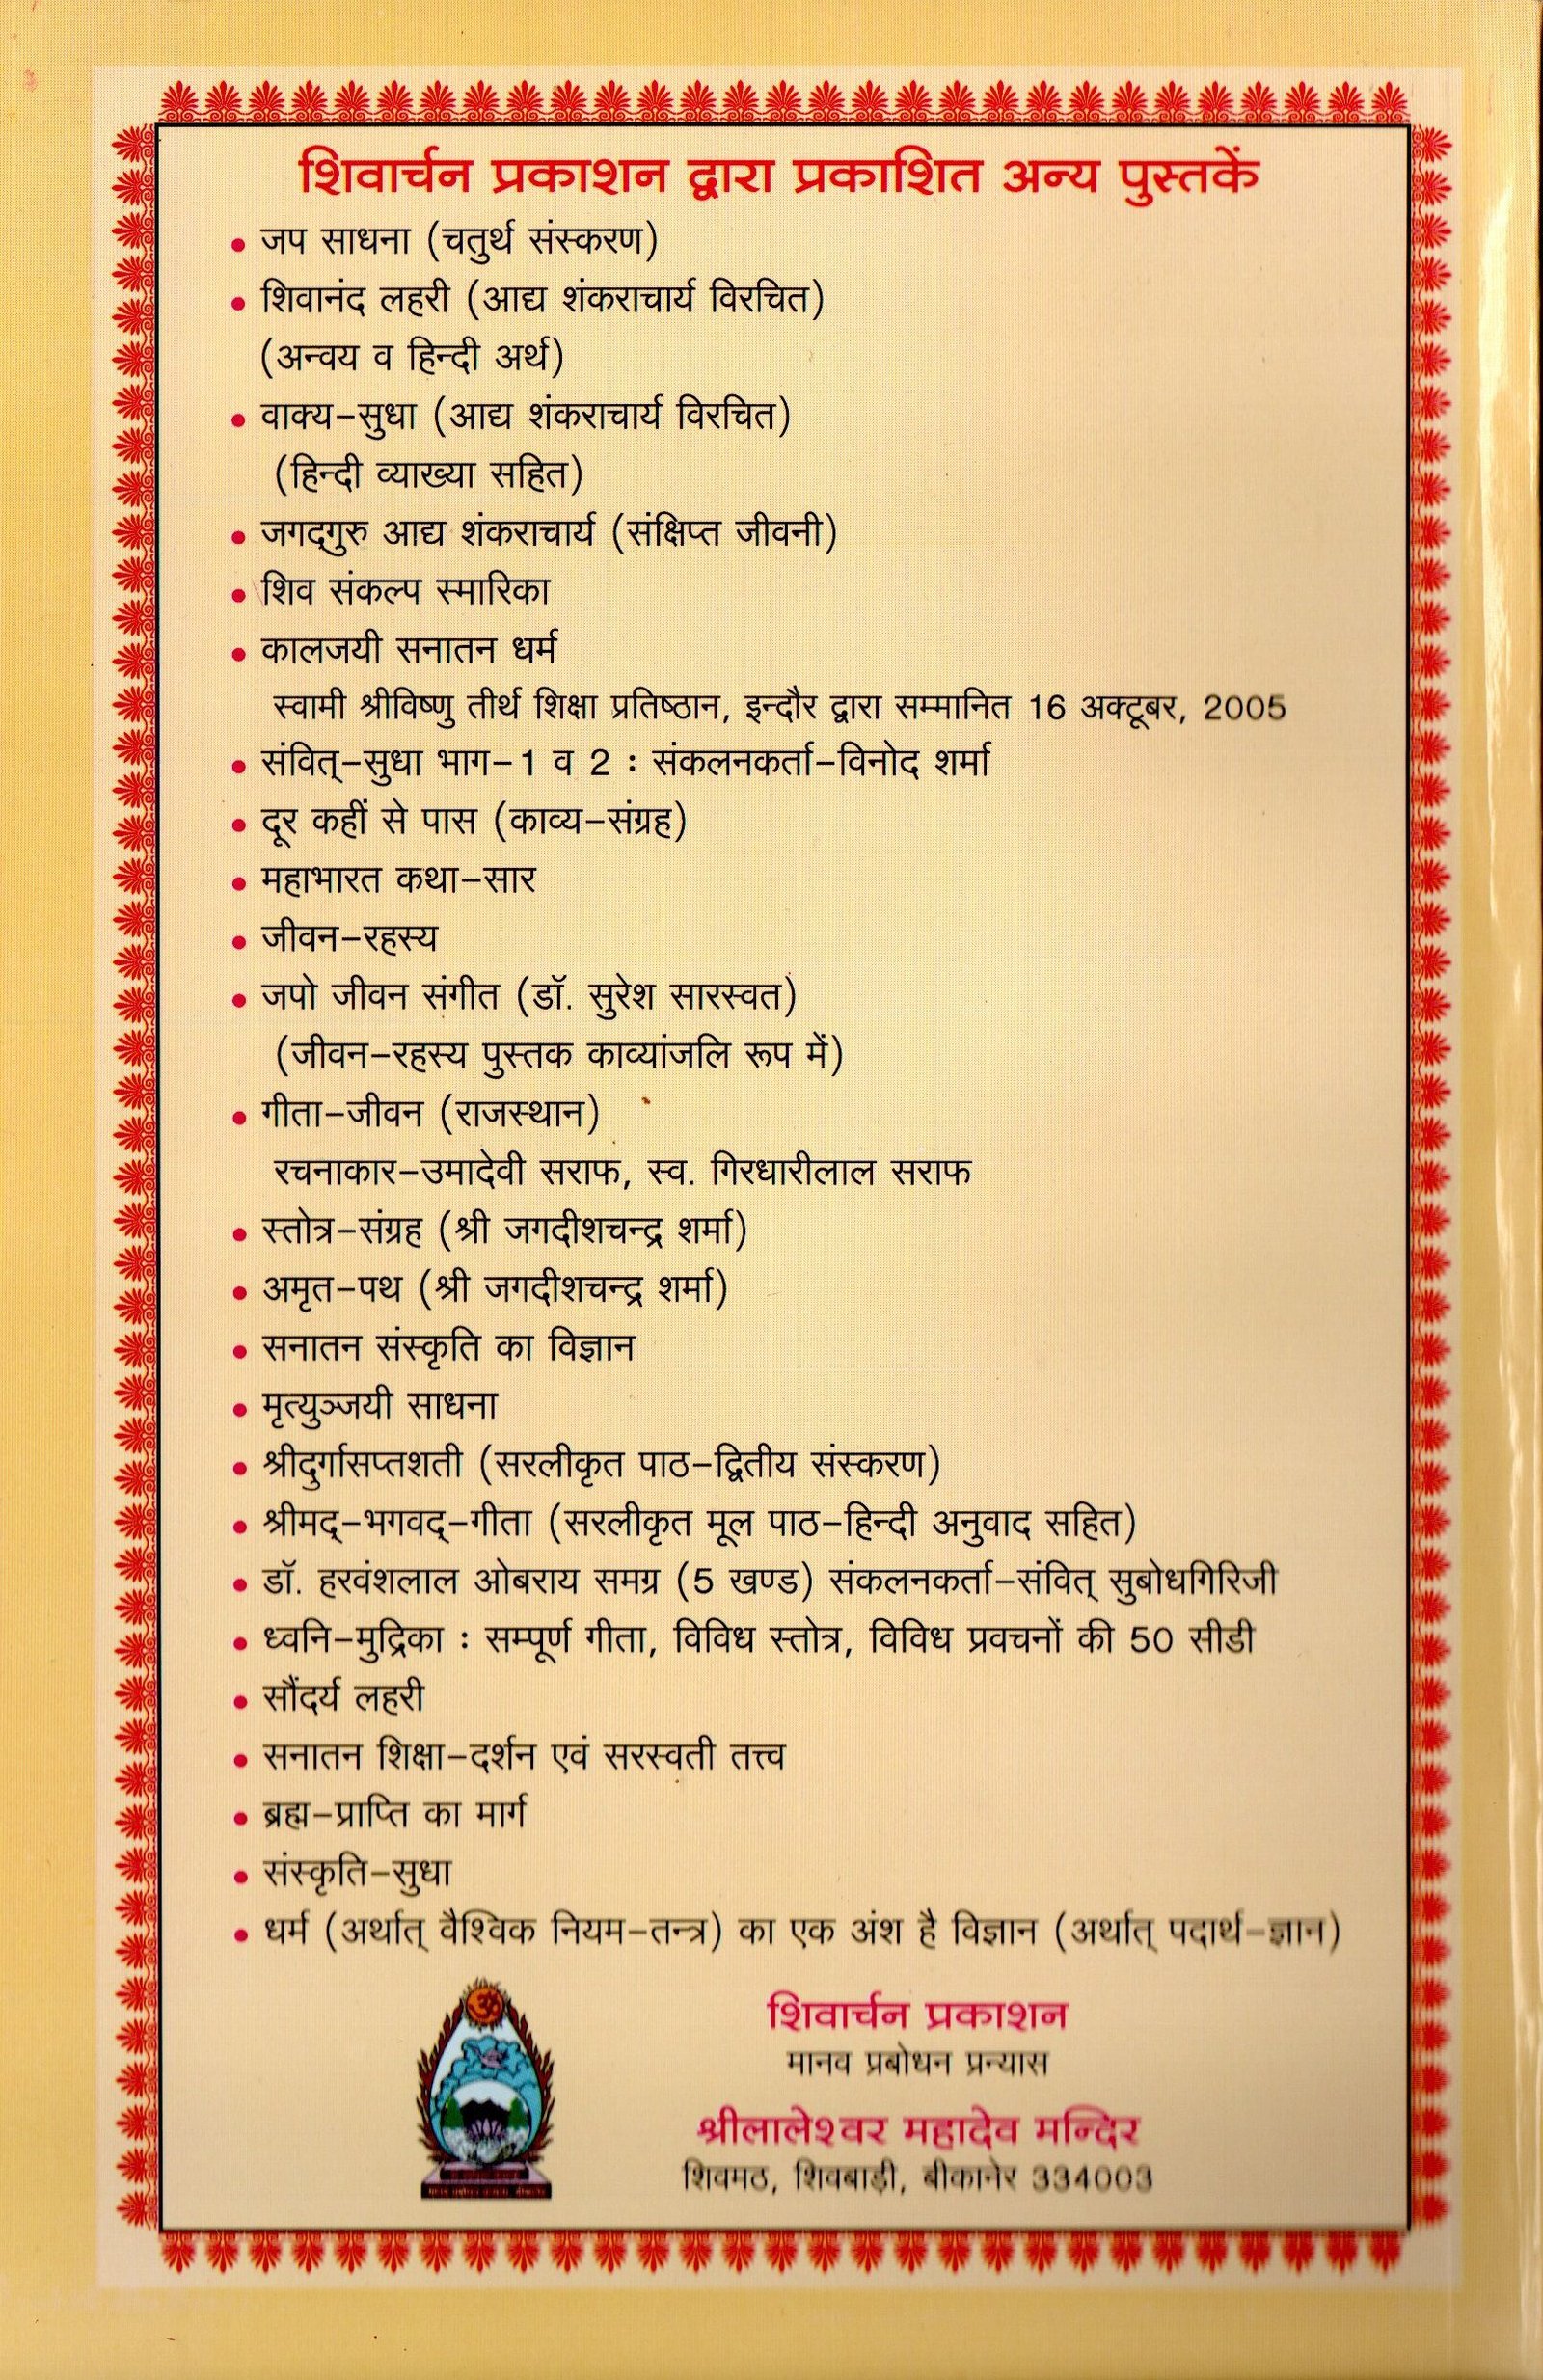 शिवार्चन प्रकाशन द्वारा प्रकाशित अन्य पुस्तकें
• जप साधना (चतुर्थ संस्करण)
• शिवानंद लहरी (आद्य शंकराचार्य विरचित)
(अन्वय व हिन्दी अर्थ)
• वाक्य-सुधा (आद्य शंकराचार्य विरचित)
(हिन्दी व्याख्या सहित)
• जगद्गुरु आद्य शंकराचार्य (संक्षिप्त जीवनी)
• शिव संकल्प स्मारिका
• कालजयी सनातन धर्म
स्वामी श्रीविष्णु तीर्थ शिक्षा प्रतिष्ठान, इन्दौर द्वारा सम्मानित 16 अक्टूबर, 2005
• संवित्-सुधा भाग-1 व 2 : संकलनकर्ता-विनोद शर्मा
• दूर कहीं से पास (काव्य-संग्रह)
• महाभारत कथा-सार
• जीवन-रहस्य
• जपो जीवन संगीत (डॉ. सुरेश सारस्वत)
(जीवन-रहस्य पुस्तक काव्यांजलि रूप में)
• गीता-जीवन (राजस्थान)
रचनाकार-उमादेवी सराफ, स्व. गिरधारीलाल सराफ
• स्तोत्र-संग्रह (श्री जगदीशचन्द्र शर्मा)
• अमृत-पथ (श्री जगदीशचन्द्र शर्मा)
• सनातन संस्कृति का विज्ञान
• मृत्युञ्जयी साधना
• श्रीदुर्गासप्तशती (सरलीकृत पाठ-द्वितीय संस्करण)
• श्रीमद्-भगवद्-गीता (सरलीकृत मूल पाठ-हिन्दी अनुवाद सहित)
• डॉ. हरवंशलाल ओबराय समग्र (5 खण्ड) संकलनकर्ता-संवित् सुबोधगिरिजी
• ध्वनि-मुद्रिका : सम्पूर्ण गीता, विविध स्तोत्र, विविध प्रवचनों की 50 सीडी
• सौंदर्य लहरी
• सनातन शिक्षा-दर्शन एवं सरस्वती तत्त्व
• ब्रह्म-प्राप्ति का मार्ग
• संस्कृति-सुधा
• धर्म (अर्थात् वैश्विक नियम-तन्त्र) का एक अंश है विज्ञान (अर्थात् पदार्थ-ज्ञान)
ॐ
शिवार्चन प्रकाशन
मानव प्रबोधन प्रन्यास
श्रीलालेश्वर महादेव मन्दिर
शिवमठ, शिवबाड़ी, बीकानेर 334003